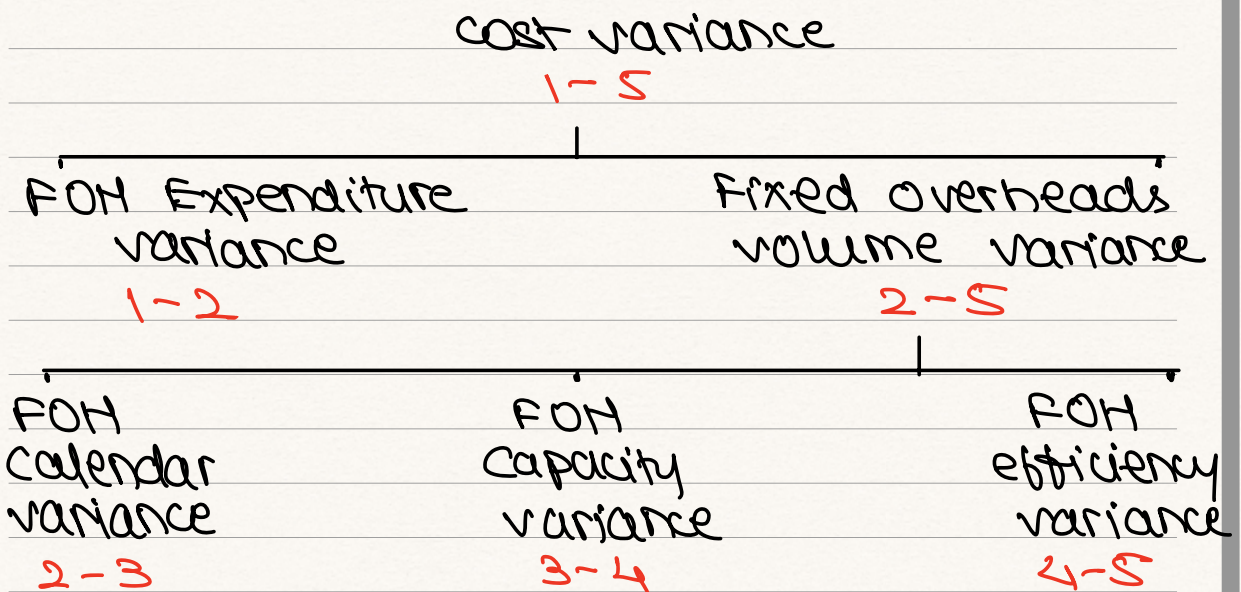 cost variance
1-5
FOH Expenditure
variance
1-2
Fixed overheads
volume variance
2-5
FOH
calendar
variance
2-3
FOH
capacity
variance
3-4
FOH
efficiency
variance
4-5